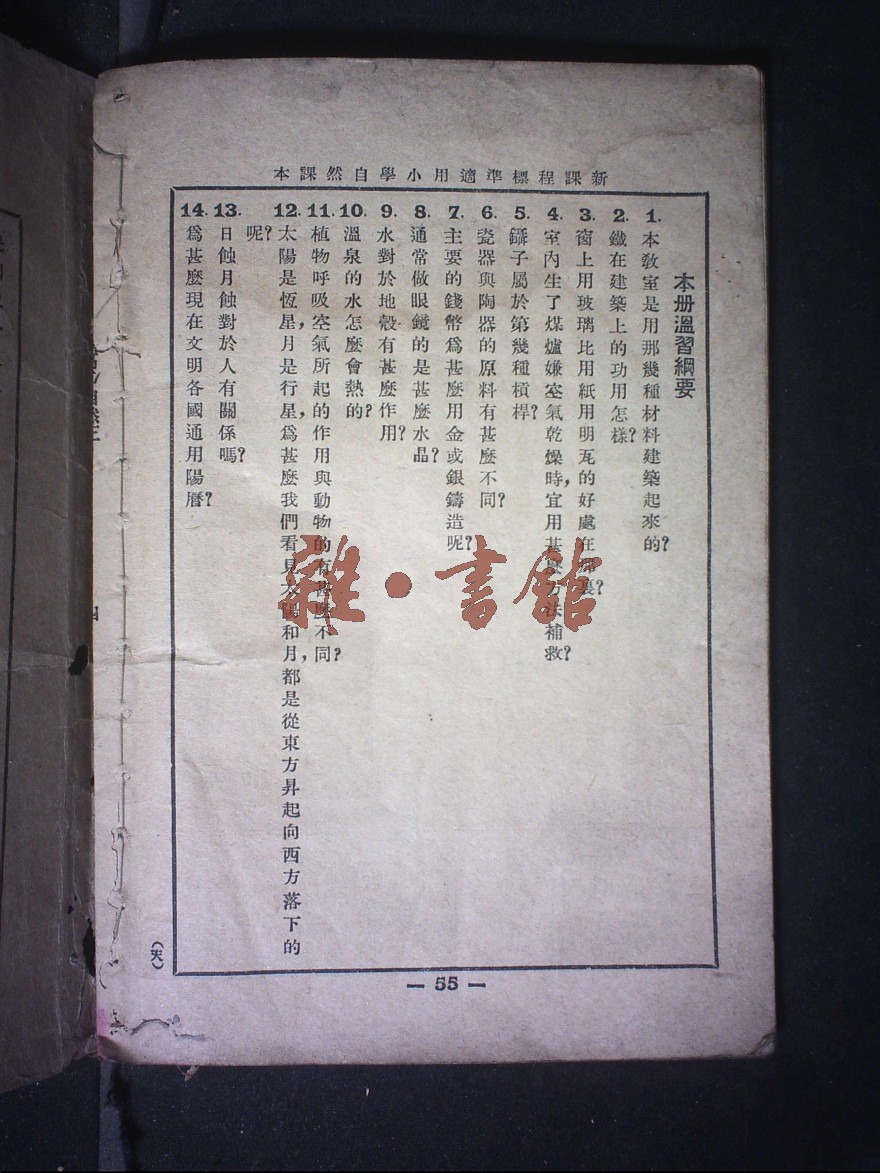 新課程標準適用小學自然課本
本册溫習綱要
1. 本教室是用那幾種材料建築起來的?
2. 鐵在建築上的功用怎樣?
3. 窗上用玻璃比用紙用明瓦的好處在裏?
4. 室內生了煤爐嫌空氣乾燥時,宜用甚麼方法補救?
5. 鑷子屬於第幾種槓桿?
6. 瓷器與陶器的原料有甚麼不同?
7. 主要的錢幣爲甚麼用金或銀鑄造呢?
8. 通常做眼鏡的是甚麼水晶?
9. 水對於地殼有甚麼作用?
10. 溫泉的水怎麼會熱的?
11. 植物呼吸空氣所起的作用與動物的有甚麼不同?
12. 太陽是恆星,月是行星,爲甚麼我們看見太陽和月,都是從東方昇起向西方落下的
呢?
13. 日蝕月蝕對於人有關係嗎?
14. 爲甚麼現在文明各國通用陽曆?
(天)
— 55 —
雜·書館